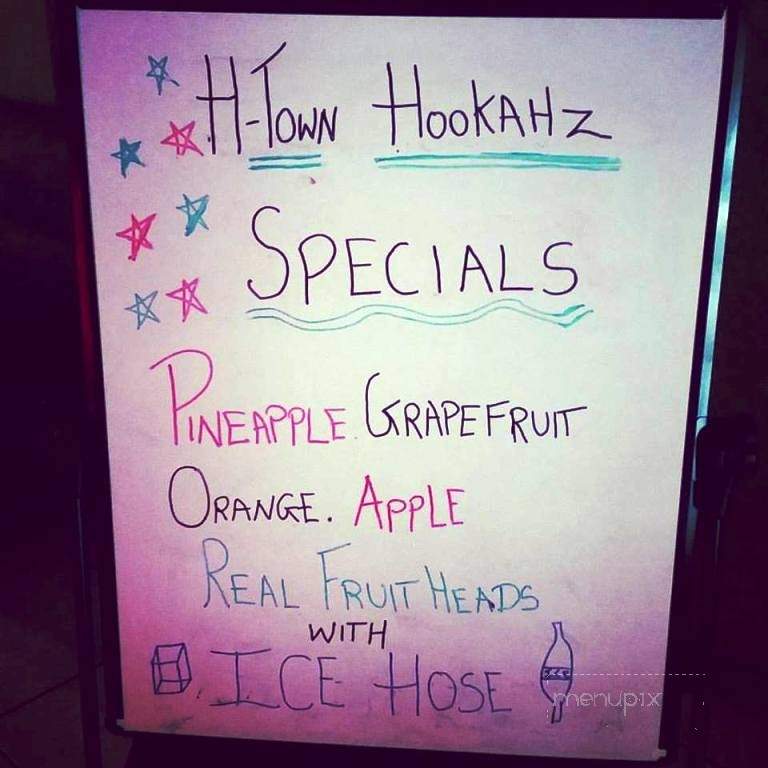 H-Town HookAHz
SPECIALS
PINEAPPLE. GRAPEFRUIT
ORANGE. APPLE
REAL FRUIT HEADS
WITH
ICE HOSE
menupix